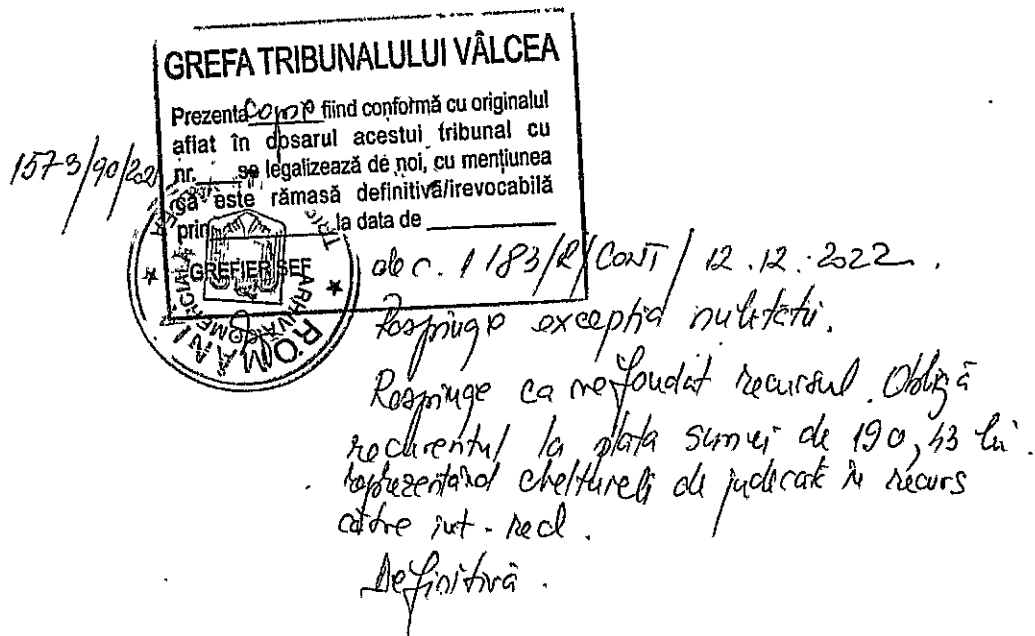 GREFA TRIBUNALULUI VÂLCEA
Prezenta copie fiind conformă cu originalul
aflat în dosarul acestui tribunal cu
nr. se legalizează de noi, cu mențiunea
că este rămasă definitivă/irevocabilă
prin la data de
1573/90/2021
GREFIER ȘEF
ROMÂNIA
dec. 1183/R/CONT/12.12.2022.
Respinge excepția nulității.
Respinge ca nefondat recursul. Obligă
recurentul la plata sumei de 190,43 lei
reprezentând cheltuieli de judecată în recurs
către int-recl.
Definitivă.